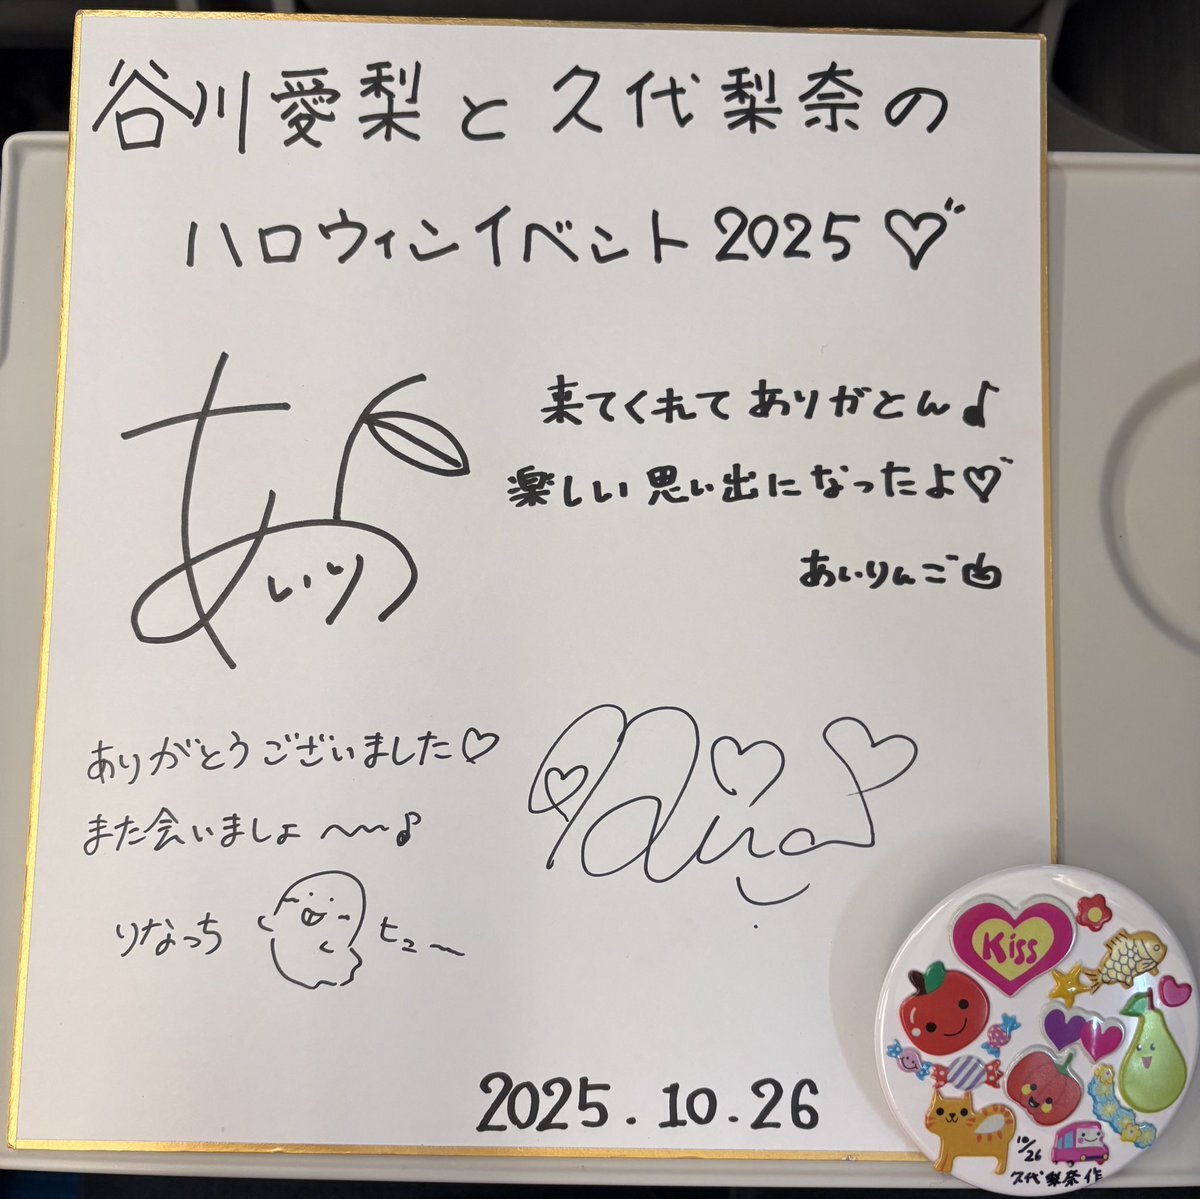 谷川愛梨と久代梨奈の
ハロウィンイベント2025♡
来てくれてありがとん♪
楽しい思い出になったよ♡
あいりんご
あいり
ありがとうございました♡
また会いましょ〜〜♪
りなっち
ヒュ〜
Rina
2025.10.26
Kiss
10/26
久代梨奈作